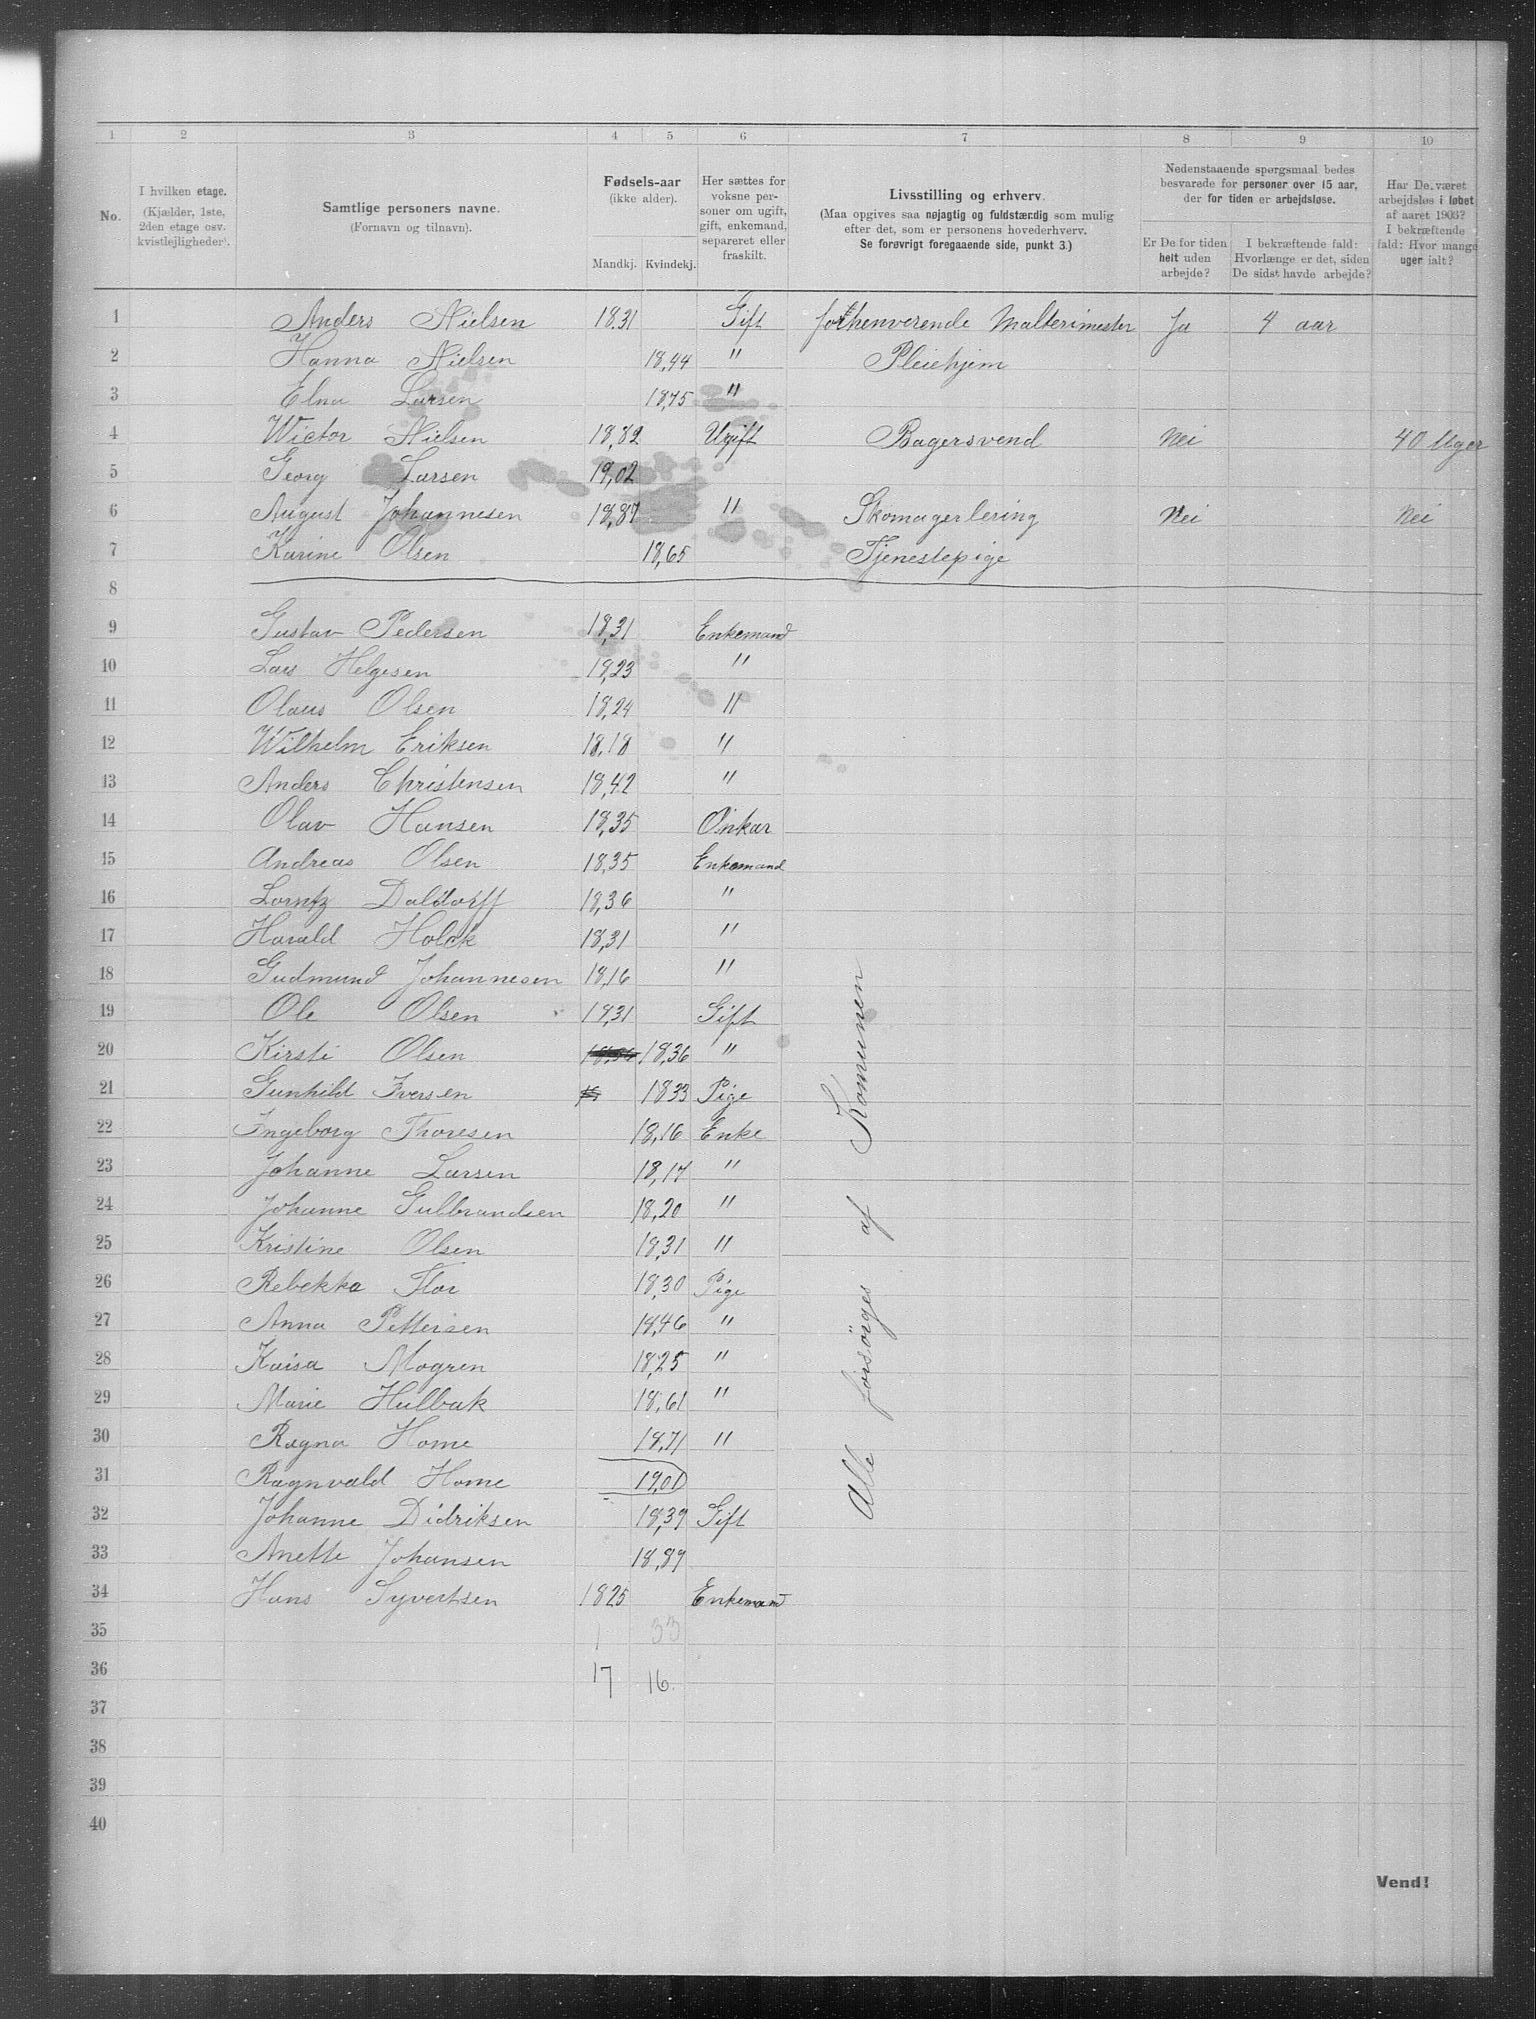 1 2 3 4 5 6 7 8 9 10
No.
I hvilken etage.
(Kjælder, 1ste,
2den etage osv.
kvistlejligheder).
Samtlige personers navne.
(Fornavn og tilnavn).
Fødsels-aar
(ikke alder).
Mandkj. Kvindekj.
Her sættes for
voksne per-
soner om ugift,
gift, enkemand,
separeret eller
fraskilt.
Livsstilling og erhverv.
(Maa opgives saa nøjagtig og fuldstændig som mulig
efter det, som er personens hovederhverv.
Se forøvrigt foregaaende side, punkt 3.)
Nedenstaaende spørgsmaal bedes
besvarede for personer over 15 aar,
der for tiden er arbejdsløse.
Er De for tiden
helt uden
arbejde?
I bekræftende fald:
Hvorlænge er det, siden
De sidst havde arbejde?
Har De været
arbejdsløs i løbet
af aaret 1903?
I bekræftende
fald: Hvor mange
uger ialt?
1 Anders Nielsen 1831 Gift forhenverende Malterimester Ja 4 aar
2 Hanna Nielsen 1844 " Pleiehjem
3 Elna Larsen 1875 "
4 Wictor Nielsen 1882 Ugift Bagersvend Nei 40 Uger
5 Georg Larsen 1902
6 August Johannesen 1887 " Skomagerlering Nei Nei
7 Karine Olsen 1865 Tjenestepige
8
9 Gustav Pedersen 1831 Enkemand
10 Lars Helgesen 1823 "
11 Olaus Olsen 1824 "
12 Wilhelm Eriksen 1818 "
13 Anders Christensen 1842 "
14 Olav Hansen 1835 Onkar
15 Andreas Olsen 1835 Enkemand
16 Lorntz Daldorff 1836 "
17 Harald Holck 1831 "
18 Gudmund Johannesen 1816 "
19 Ole Olsen 1831 Gift
20 Kirsti Olsen 1836 "
21 Gunhild Iversen 1833 Pige
22 Ingeborg Thoresen 1816 Enke
23 Johanne Larsen 1817 "
24 Johanne Gulbrandsen 1820 "
25 Kristine Olsen 1831 "
26 Rebekka Flor 1830 Pige
27 Anna Pettersen 1846 "
28 Kaisa Mogren 1825 "
29 Marie Hulbak 1861 "
30 Ragna Home 1871 "
31 Ragnvald Home 1901
32 Johanne Didriksen 1839 Gift
33 Anette Johansen 1889
34 Hans Syvertsen 1825 Enkemand
Alle forsörges af Komunen
35 1 33
36 17 16.
37
38
39
40
Vend!